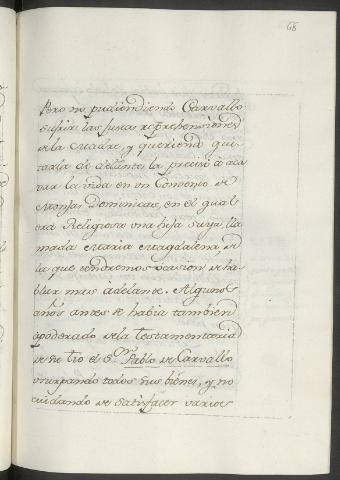 68
Pero no pudiendo Carvallo
sufrir las justas reprehensiones
de la Madre, y queriendo qui-
tarla de delante la precisó á aca-
var la vida en un Convento de
Monjas Dominicas, en el qual
era Religiosa una hija suya, lla-
mada Maria Magdalena, de
la que tendremos ocasion de ha-
blar mas adelante. Algunos
años antes se habia tambien
apoderado de la testamentaria
de su tio el S.or Pablo de Carvallo
usurpando todos sus bienes, y no
cuidando de satisfacer varios